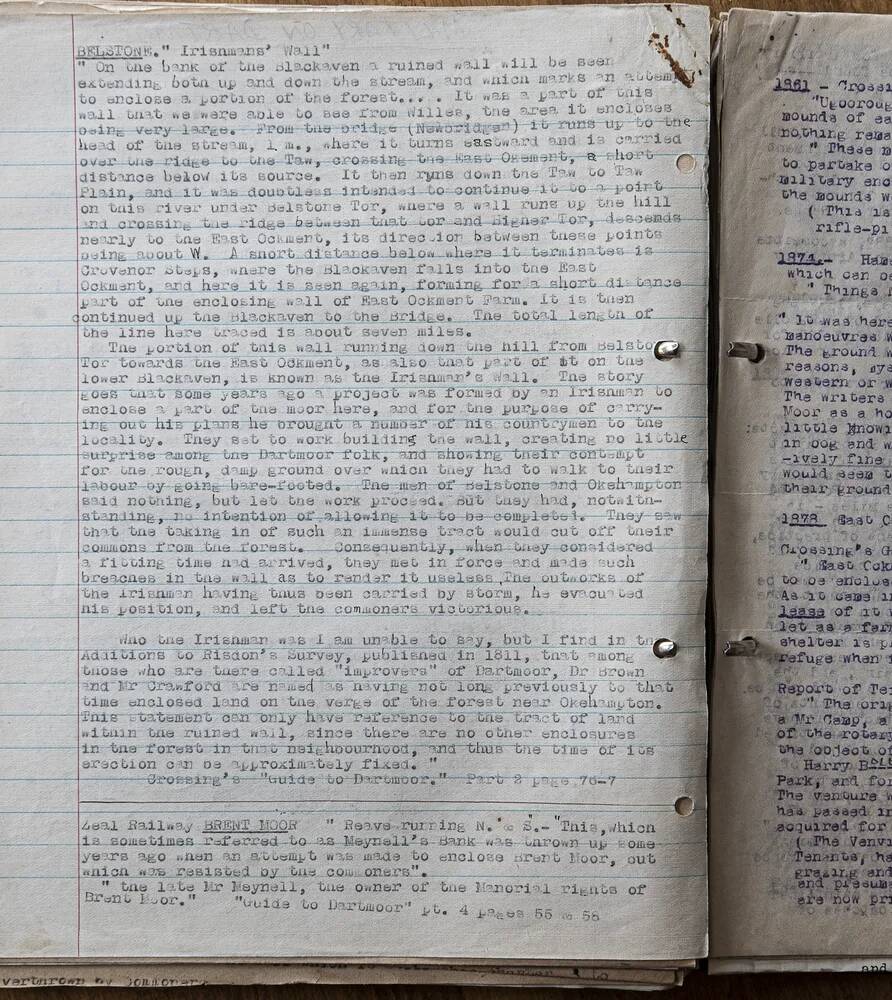 BELSTONE." Irishmans' Wall"
" On the bank of the Blackaven a ruined wall will be seen
extending both up and down the stream, and which marks an attem
to enclose a portion of the forest.... It was a part of this
wall that we were able to see from Willes, the area it encloses
being very large. From the bridge (Newbridge) it runs up to the
head of the stream, 1 m., where it turns eastward and is carried
over the ridge to the Taw, crossing the East Okement, a short
distance below its source. It then runs down the Taw to Taw
Plain, and it was doubtless intended to continue it to a point
on this river under Belstone Tor, where a wall runs up the hill
and crossing the ridge between that tor and Higher Tor, descends
nearly to the East Ockment, its direction between these points
being about W. A short distance below where it terminates is
Crovenor Steps, where the Blackaven falls into the East
Ockment, and here it is seen again, forming for a short distance
part of the enclosing wall of East Ockment Farm. It is then
continued up the Blackaven to the Bridge. The total length of
the line here traced is about seven miles.
The portion of this wall running down the hill from Belsto
Tor towards the East Ockment, as also that part of it on the
lower Blackaven, is known as the Irishman's Wall. The story
goes that some years ago a project was formed by an Irishman to
enclose a part of the moor here, and for the purpose of carry-
ing out his plans he brought a number of his countrymen to the
locality. They set to work building the wall, creating no little
surprise among the Dartmoor folk, and showing their contempt
for the rough, damp ground over which they had to walk to their
labour by going bare-footed. The men of Belstone and Okehampton
said nothing, but let the work proceed. But they had, notwith-
standing, no intention of allowing it to be completed. They saw
that the taking in of such an immense tract would cut off their
commons from the forest. Consequently, when they considered
a fitting time had arrived, they met in force and made such
breaches in the wall as to render it useless, The outworks of
the Irishman having thus been carried by storm, he evacuated
his position, and left the commoners victorious.
Who the Irishman was I am unable to say, but I find in th
Additions to Risdon's Survey, published in 1811, that among
those who are there called "improvers" of Dartmoor, Dr Brown
and Mr Crawford are named as having not long previously to that
time enclosed land on the verge of the forest near Okehampton.
This statement can only have reference to the tract of land
within the ruined wall, since there are no other enclosures
in the forest in that neighbourhood, and thus the time of its
erection can be approximately fixed. "
Crossing's "Guide to Dartmoor." Part 2 page 76-7
Zeal Railway BRENT MOOR " Reave running N. & S.- "This, which
is sometimes referred to as Meynell's Bank was thrown up some
years ago when an attempt was made to enclose Brent Moor, but
which was resisted by the commoners".
" the late Mr Meynell, the owner of the Manorial rights of
Brent Moor." "Guide to Dartmoor" pt. 4 pages 55 & 58
verthrown by commoners
1961 - Crossi
"Ugborough
mounds of ea
nothing rema
" These m
to partake o
military enc
the mounds w
( This is
rifle-pi
1874.- Hame
which can be
" Things
" It was here
manoeuvres w
The ground w
reasons, mys
western or w
The writers
Moor as a ho
little knowi
in bog and w
-ively fine
would seem t
their ground
1878 East O
Crossing's G
" East Ock
to be enclos
As it came i
lease of it
let as a far
shelter is p
refuge when
Report of Te
" The orig
a Mr Camp, a
of the rotar
the object o
Harry B
Park, and fo
The venture w
has passed in
acquired for
( The Venvi
Tenants, ha
grazing and
and presum
are now pri
and